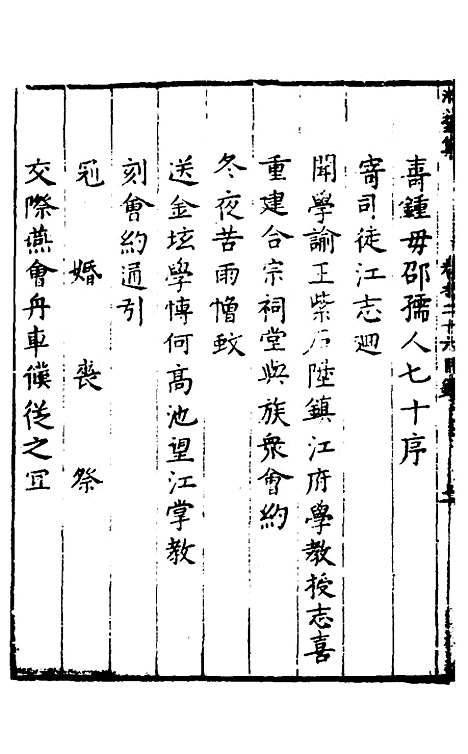 壽鍾毋邵孺人七十序
寄司徒江志迴
聞學諭王柴石陞鎮江府學教授志喜
重建合宗祠堂與族衆會約
冬夜苦雨憎蚊
送金坛學博何高池望江掌教
刻會約通引
冠 婚 喪 祭
交際燕會舟車僕從之宜